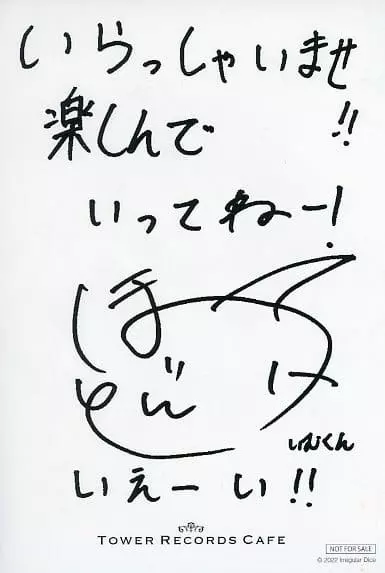 いらっしゃいませ
楽しんで !!
いってねー!
ほとけ
いむくん
いぇーい!!
TOWER RECORDS CAFE
NOT FOR SALE
© 2022 Irregular Dice